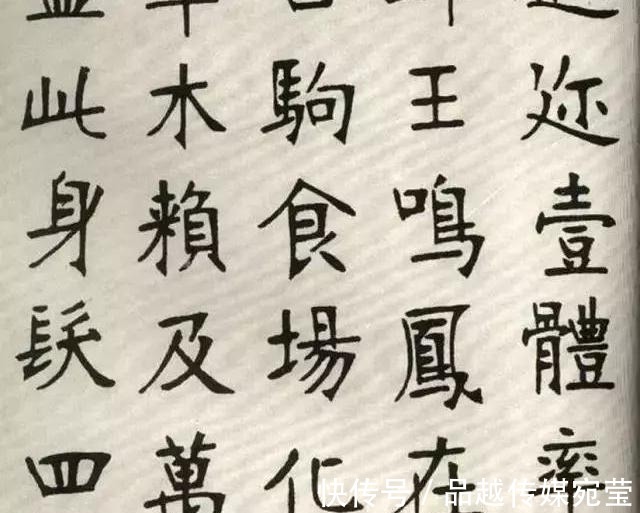 迩壹體率
王鳴鳳在
駒食場化
木賴及萬
此身髮四
快传号 / 品越传媒宛莹